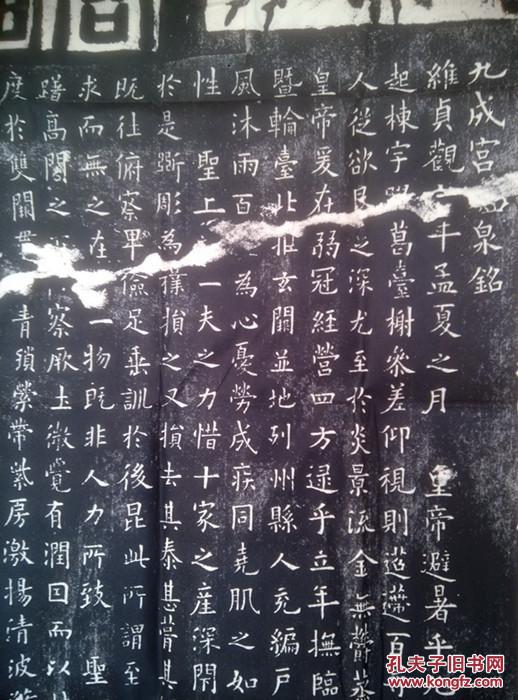 九成宮泉銘
維貞觀年孟夏之月 皇帝避暑乎
起棟宇葛臺榭參差仰視則迢遰百
人從欲良之深尤至於炎景流金無鬱蒸
皇帝爰在弱冠經營四方逮乎立年撫臨
暨輪臺北拒玄闕並地列州縣人充編戶
風沐雨百為心憂勞成疾同堯肌之如
性 聖上一夫之力惜十家之産深閇
於是斲彫為樸損之又損去其泰甚葺其
既往俯察卑儉足垂訓於後昆此所謂至
求而無之在一物既非人力所致 聖
躇高閣之察厥土微覺有潤因而以
度於雙闕貫青瑣縈帶紫房激揚清波
孔夫子旧书网
KONGFZ.COM